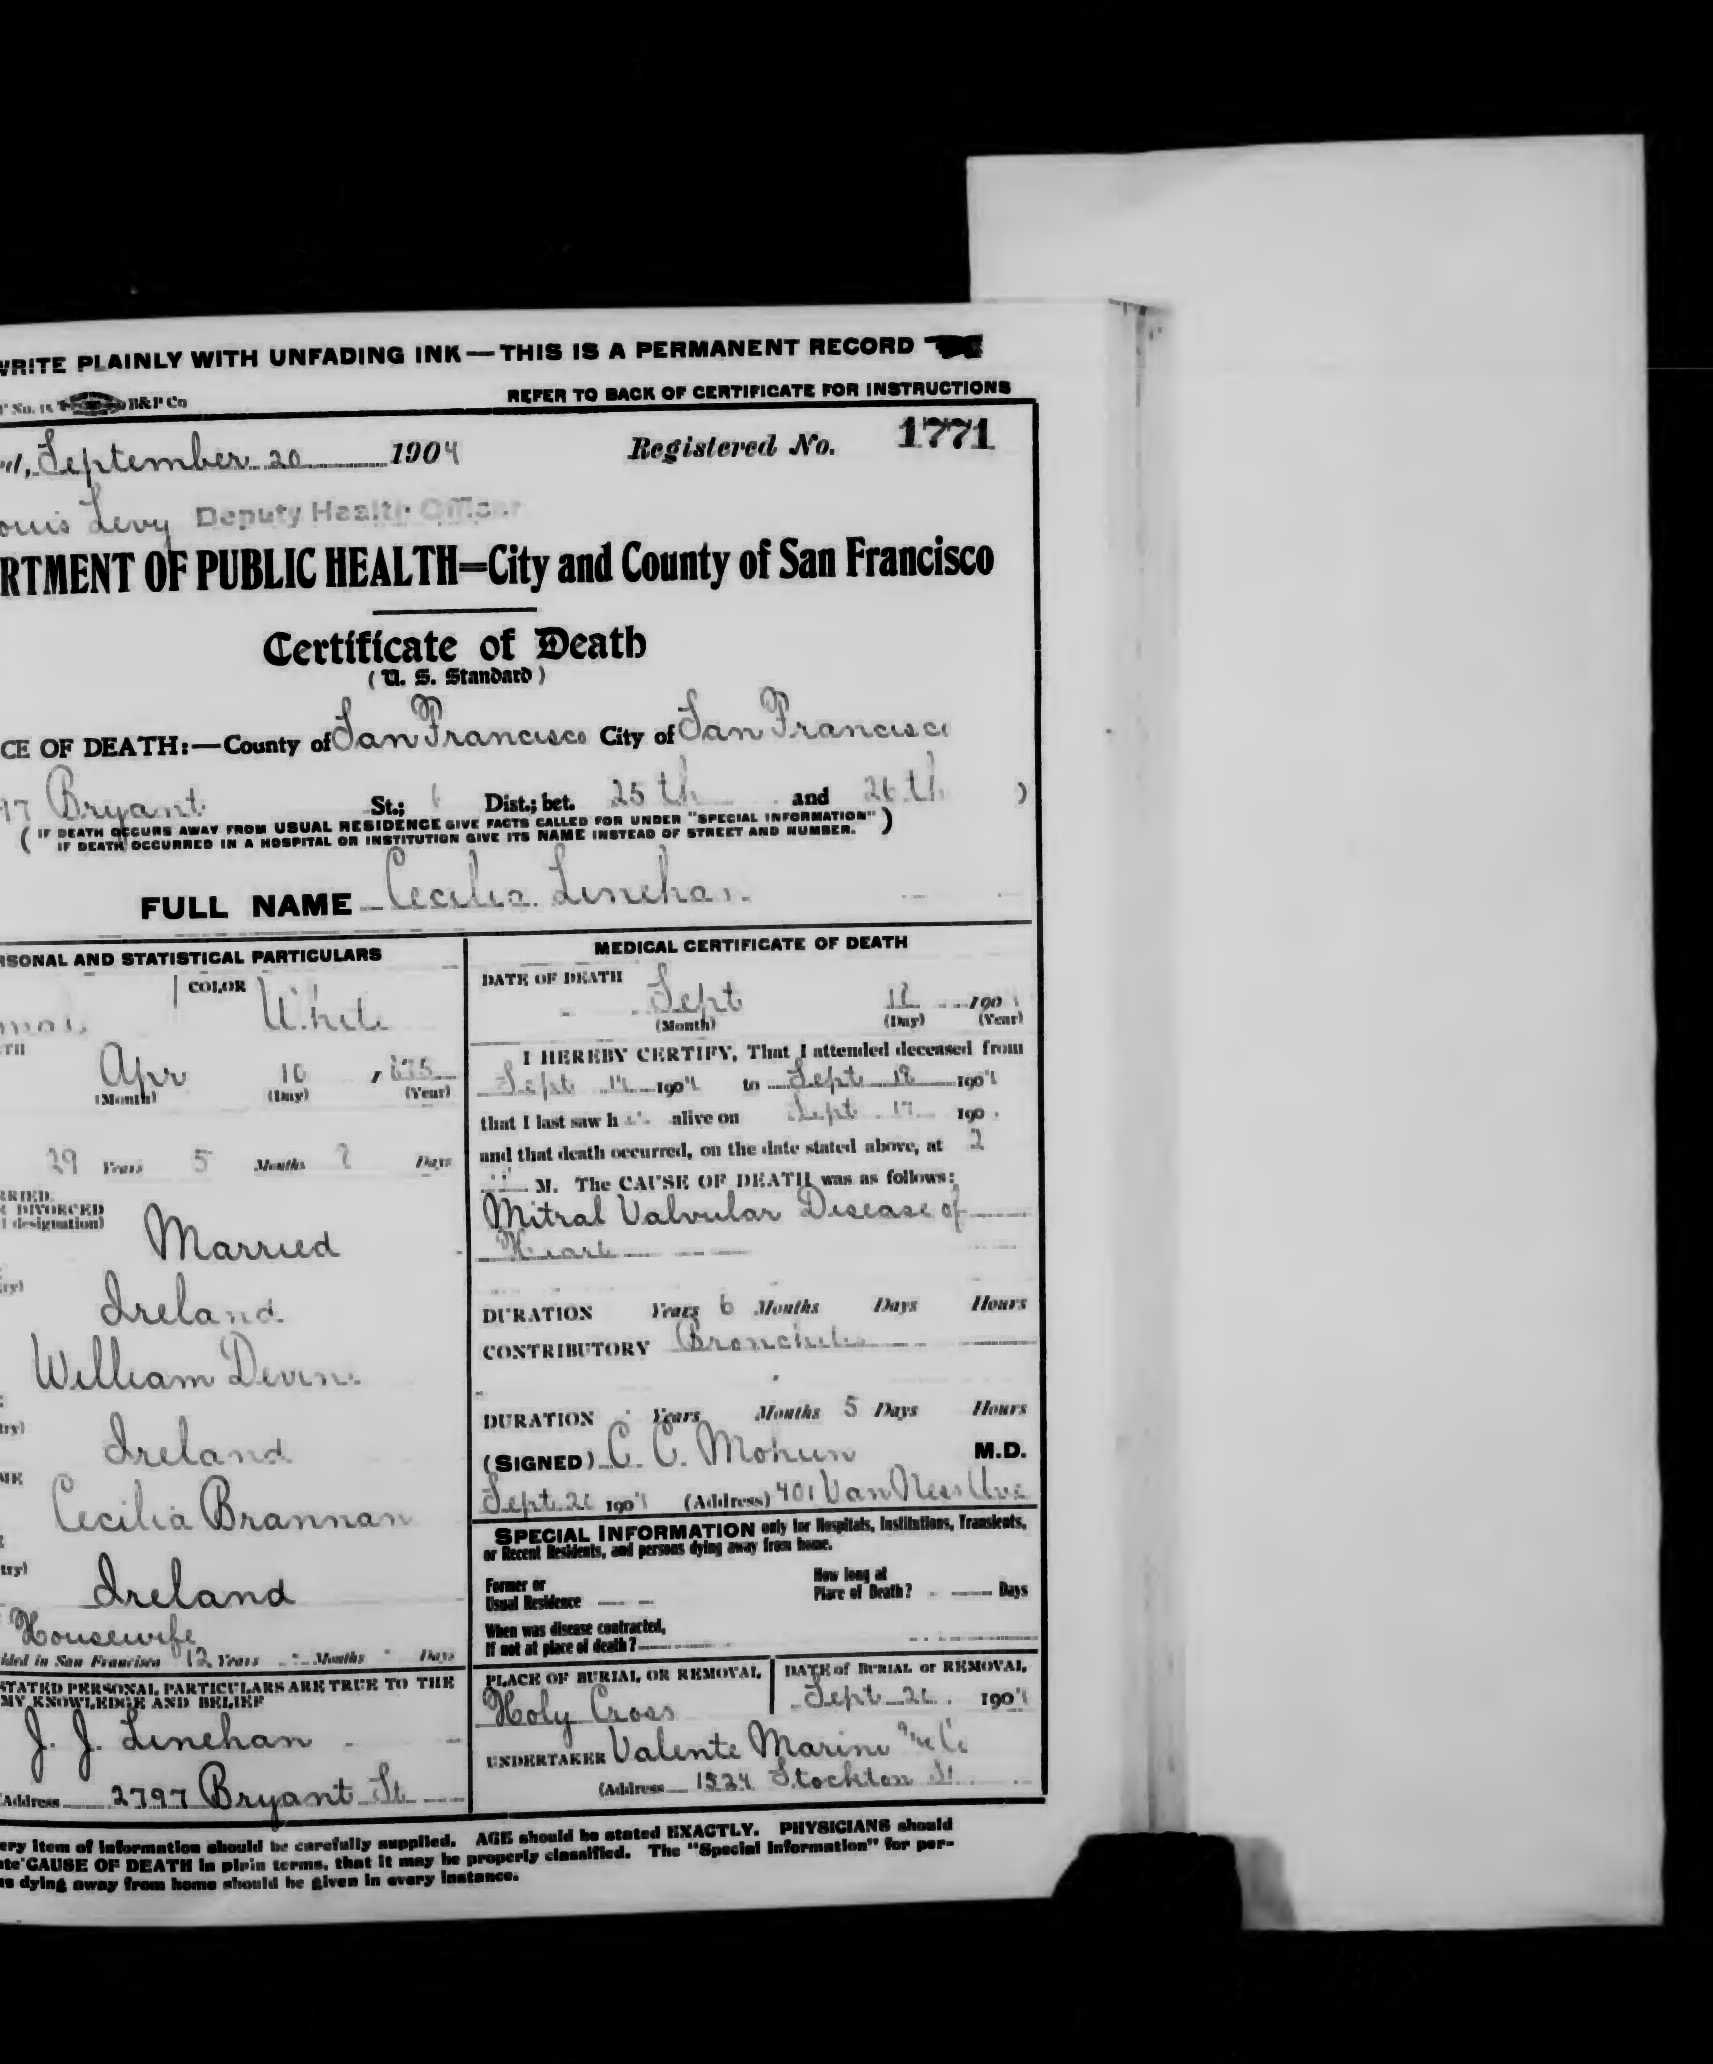 WRITE PLAINLY WITH UNFADING INK — THIS IS A PERMANENT RECORD
B&P Co
REFER TO BACK OF CERTIFICATE FOR INSTRUCTIONS
September 20 1904
Registered No. 1771
ouis Levy Deputy Health Officer
RTMENT OF PUBLIC HEALTH=City and County of San Francisco
Certificate of Death
( U. S. Standard )
CE OF DEATH:—County of San Francisco City of San Francisco
97 Bryant St.; Dist.; bet. 25th and 26th )
( IF DEATH OCCURS AWAY FROM USUAL RESIDENCE GIVE FACTS CALLED FOR UNDER "SPECIAL INFORMATION" )
IF DEATH OCCURRED IN A HOSPITAL OR INSTITUTION GIVE ITS NAME INSTEAD OF STREET AND NUMBER.
FULL NAME Cecilia Linehan
RSONAL AND STATISTICAL PARTICULARS
COLOR White
TH
Apr 10
(Month) (Day) (Year)
29 Years 5 Months 8 Days
RRIED,
R DIVORCED
l designation)
Married
Ireland
William Devine
try)
Ireland
ME
Cecilia Brannan
try)
Ireland
Housewife
ided in San Francisco 12 Years Months Days
STATED PERSONAL PARTICULARS ARE TRUE TO THE
MY KNOWLEDGE AND BELIEF
J. J. Linehan
Address 2797 Bryant St
MEDICAL CERTIFICATE OF DEATH
DATE OF DEATH
Sept 18 190
(Month) (Day) (Year)
I HEREBY CERTIFY, That I attended deceased from
Sept 1904 to Sept 18 1904
that I last saw h alive on Sept 17 190
and that death occurred, on the date stated above, at 2
M. The CAUSE OF DEATH was as follows:
Mitral Valvular Disease of
Heart
DURATION Years 6 Months Days Hours
CONTRIBUTORY Bronchitis
DURATION Years Months 5 Days Hours
(SIGNED) C. C. Mohun M.D.
Sept 20 1904 (Address) 401 Van Ness Ave
SPECIAL INFORMATION only for Hospitals, Institutions, Transients,
or Recent Residents, and persons dying away from home.
Former or
Usual Residence
How long at
Place of Death? Days
When was disease contracted,
If not at place of death?
PLACE OF BURIAL OR REMOVAL
Holy Cross
DATE of BURIAL or REMOVAL
Sept 20 1904
UNDERTAKER Valente Marini & Co
(Address 1524 Stockton St
ery item of information should be carefully supplied. AGE should be stated EXACTLY. PHYSICIANS should
ate CAUSE OF DEATH in plain terms, that it may be properly classified. The "Special Information" for per-
ns dying away from home should be given in every instance.